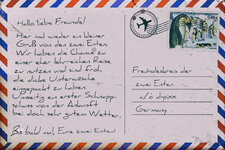 Hallo liebe Freunde!
Hier mal wieder ein kleiner
Gruß von den zwei Enten.
Wir haben die Chance zu
einer eher lehrreichen Reise
zu nutzen und sind froh,
die dicke Unterwäsche
eingepackt zu haben.
Unseitig ein erster Schnapp-
schuss von der Ankunft
bei doch sehr gutem Wetter.
Bis bald mal, Eure zwei Enten!
Freundeskreis der
zwei Enten
Germany